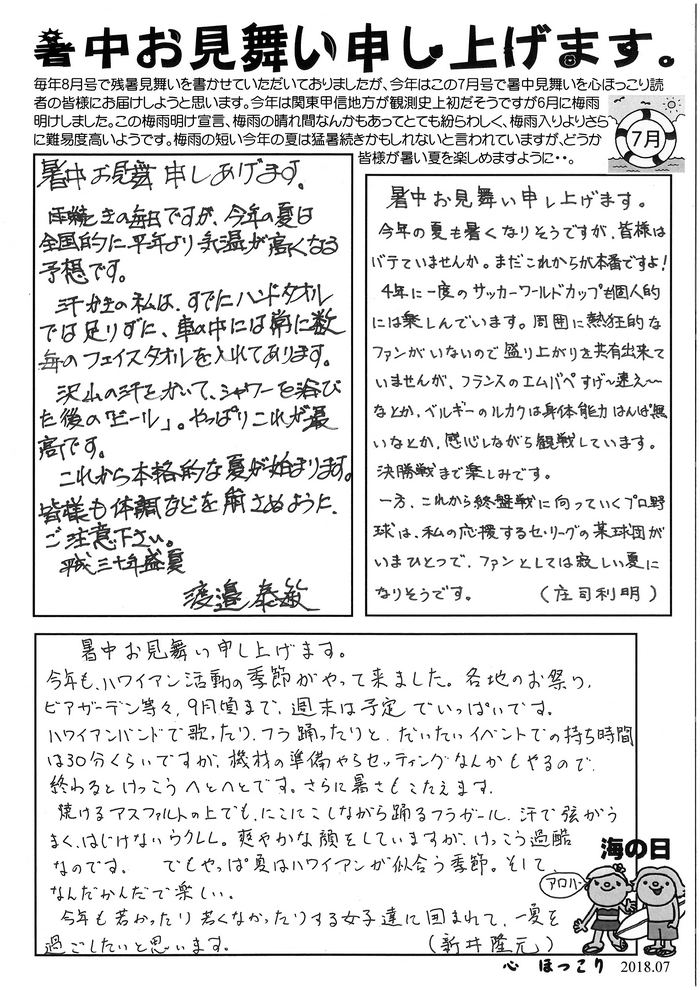 暑中お見舞い申し上げます。
毎年8月号で残暑見舞いを書かせていただいておりましたが、今年はこの7月号で暑中見舞いを心ほっこり読
者の皆様にお届けしようと思います。今年は関東甲信地方が観測史上初だそうですが6月に梅雨
明けしました。この梅雨明け宣言、梅雨の晴れ間なんかもあってとても紛らわしく、梅雨入りよりさら
に難易度高いようです。梅雨の短い今年の夏は猛暑続きかもしれないと言われていますが、どうか
皆様が暑い夏を楽しめますように・・。
7月
暑中お見舞申しあげます。
続きの毎日ですが、今年の夏は
全国的に平年より気温が高くなる
予想です。
汗かきの私は、すでにハンドタオル
では足りずに、車の中には常に数
毎のフェイスタオルを入れてあります。
沢山の汗をかいて、シャワーを浴び
た後の「ビール」。やっぱりこれが最
高です。
これから本格的な夏が始まります。
皆様も体調などを崩さぬように、
ご注意下さい。
平成三十年盛夏
渡邉泰敏
暑中お見舞い申し上げます。
今年の夏も暑くなりそうですが、皆様は
バテていませんか。まだこれからが本番ですよ!
4年に一度のサッカーワールドカップも個人的
には楽しんでいます。周囲に熱狂的な
ファンがいないので盛り上がりを共有出来て
いませんが、フランスのエムバペすげ〜速え〜
なとか、ベルギーのルカクは身体能力はんぱ無
いなとか、感心しながら観戦しています。
決勝戦まで楽しみです。
一方、これから終盤戦に向っていくプロ野
球は、私の応援するセ・リーグの某球団が
いまひとつで、ファンとしては寂しい夏に
なりそうです。 (庄司利明)
暑中お見舞い申し上げます。
今年も、ハワイアン活動の季節がやって来ました。各地のお祭り、
ビアガーデン等々、9月頃まで、週末は予定でいっぱいです。
ハワイアンバンドで歌ったり、フラ踊ったりと、だいたいイベントでの持ち時間
は30分くらいですが、機材の準備やらセッティングなんかもやるので、
終わるとけっこうへとへとです。さらに暑さもこたえます。
焼けるアスファルトの上でも、にこにこしながら踊るフラガール、汗で弦がう
まく、はじけないウクレレ。爽やかな顔をしていますが、けっこう過酷
なのです。 でもやっぱ夏はハワイアンが似合う季節。そして
なんだかんだで楽しい。
今年も若かったり若くなかったりする女子達に囲まれて、一夏を
過ごしたいと思います。 (新井隆元)
海の日
アロハ〜
心 ほっこり 2018.07